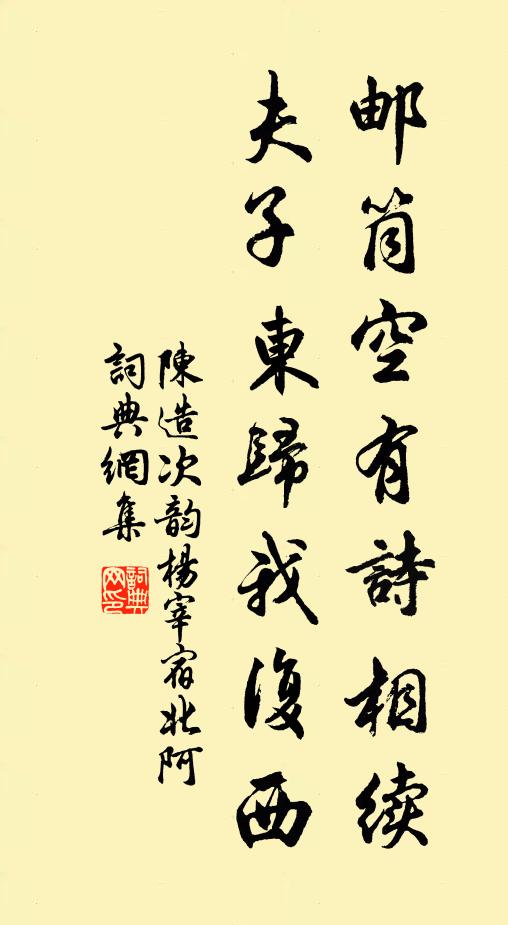 邮筒空有詩相续
夫子東歸我復西
陳造次韵楊宰宿北阿
詞典網集
詞典网印